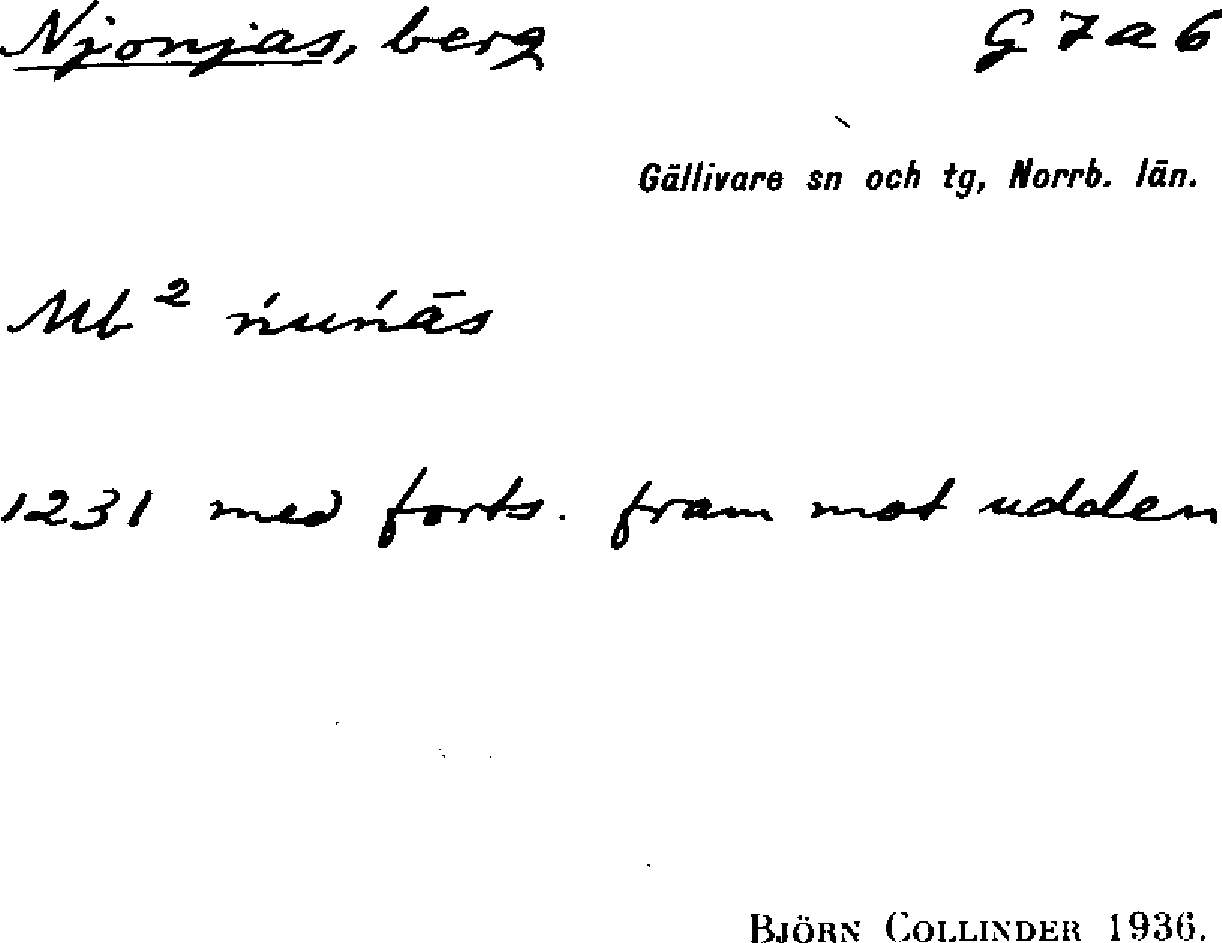 Njonjas, berg G 7 a 6
Gällivare sn och tg, Norrb. län.
Mb² ńuńās
1231 med forts. fram mot udden
BJÖRN COLLINDER 1936.